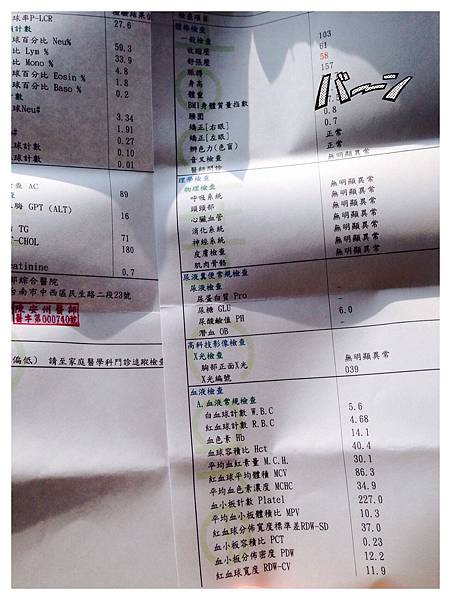 球率P-LCR 27.6
計數
球百分比 Neu% 59.3
比 Lym % 33.9
比 Mono % 4.8
百分比 Eosin % 1.8
百分比 Baso % 0.2
數
球Neu# 3.34
1.91
球計數 0.27
計數 0.10
計數 0.01
查 AC 89
酶 GPT (ALT) 16
TG 71
-CHOL 180
eatinine 0.7
部綜合醫院
台南市中西區民生路二段23號
陳安州醫師
醫字第000740號
偏低) 請至家庭醫學科門診追蹤檢查
檢查項目
體格檢查
一般檢查
收縮壓 103
舒張壓 61
脈搏 58
身高 157
體重
BMI身體質量指數
腰圍
矯正[右眼] 0.8
矯正[左眼] 0.7
辨色力(色盲) 正常
音叉檢查 正常
醫師問診
バーン
理學檢查
物理檢查
呼吸系統 無明顯異常
頭頸部 無明顯異常
心臟血管 無明顯異常
消化系統 無明顯異常
神經系統 無明顯異常
皮膚檢查 無明顯異常
肌肉骨骼 無明顯異常
尿液糞便常規檢查
尿液檢查
尿蛋白質 Pro -
尿糖 GLU -
尿酸鹼值 PH 6.0
潛血 OB -
高科技影像檢查
X光檢查
胸部正面X光 無明顯異常
X光編號 039
血液檢查
A.血液常規檢查
白血球計數 W.B.C 5.6
紅血球計數 R.B.C 4.68
血色素 Hb 14.1
血球容積比 Hct 40.4
平均血紅素量 M.C.H. 30.1
紅血球平均體積 MCV 86.3
平均血色素濃度 MCHC 34.9
血小板計數 Platel 227.0
平均血小板體積比 MPV 10.3
紅血球分佈寬度標準差RDW-SD 37.0
血小板容積比 PCT 0.23
血小板分佈密度 PDW 12.2
紅血球寬度 RDW-CV 11.9